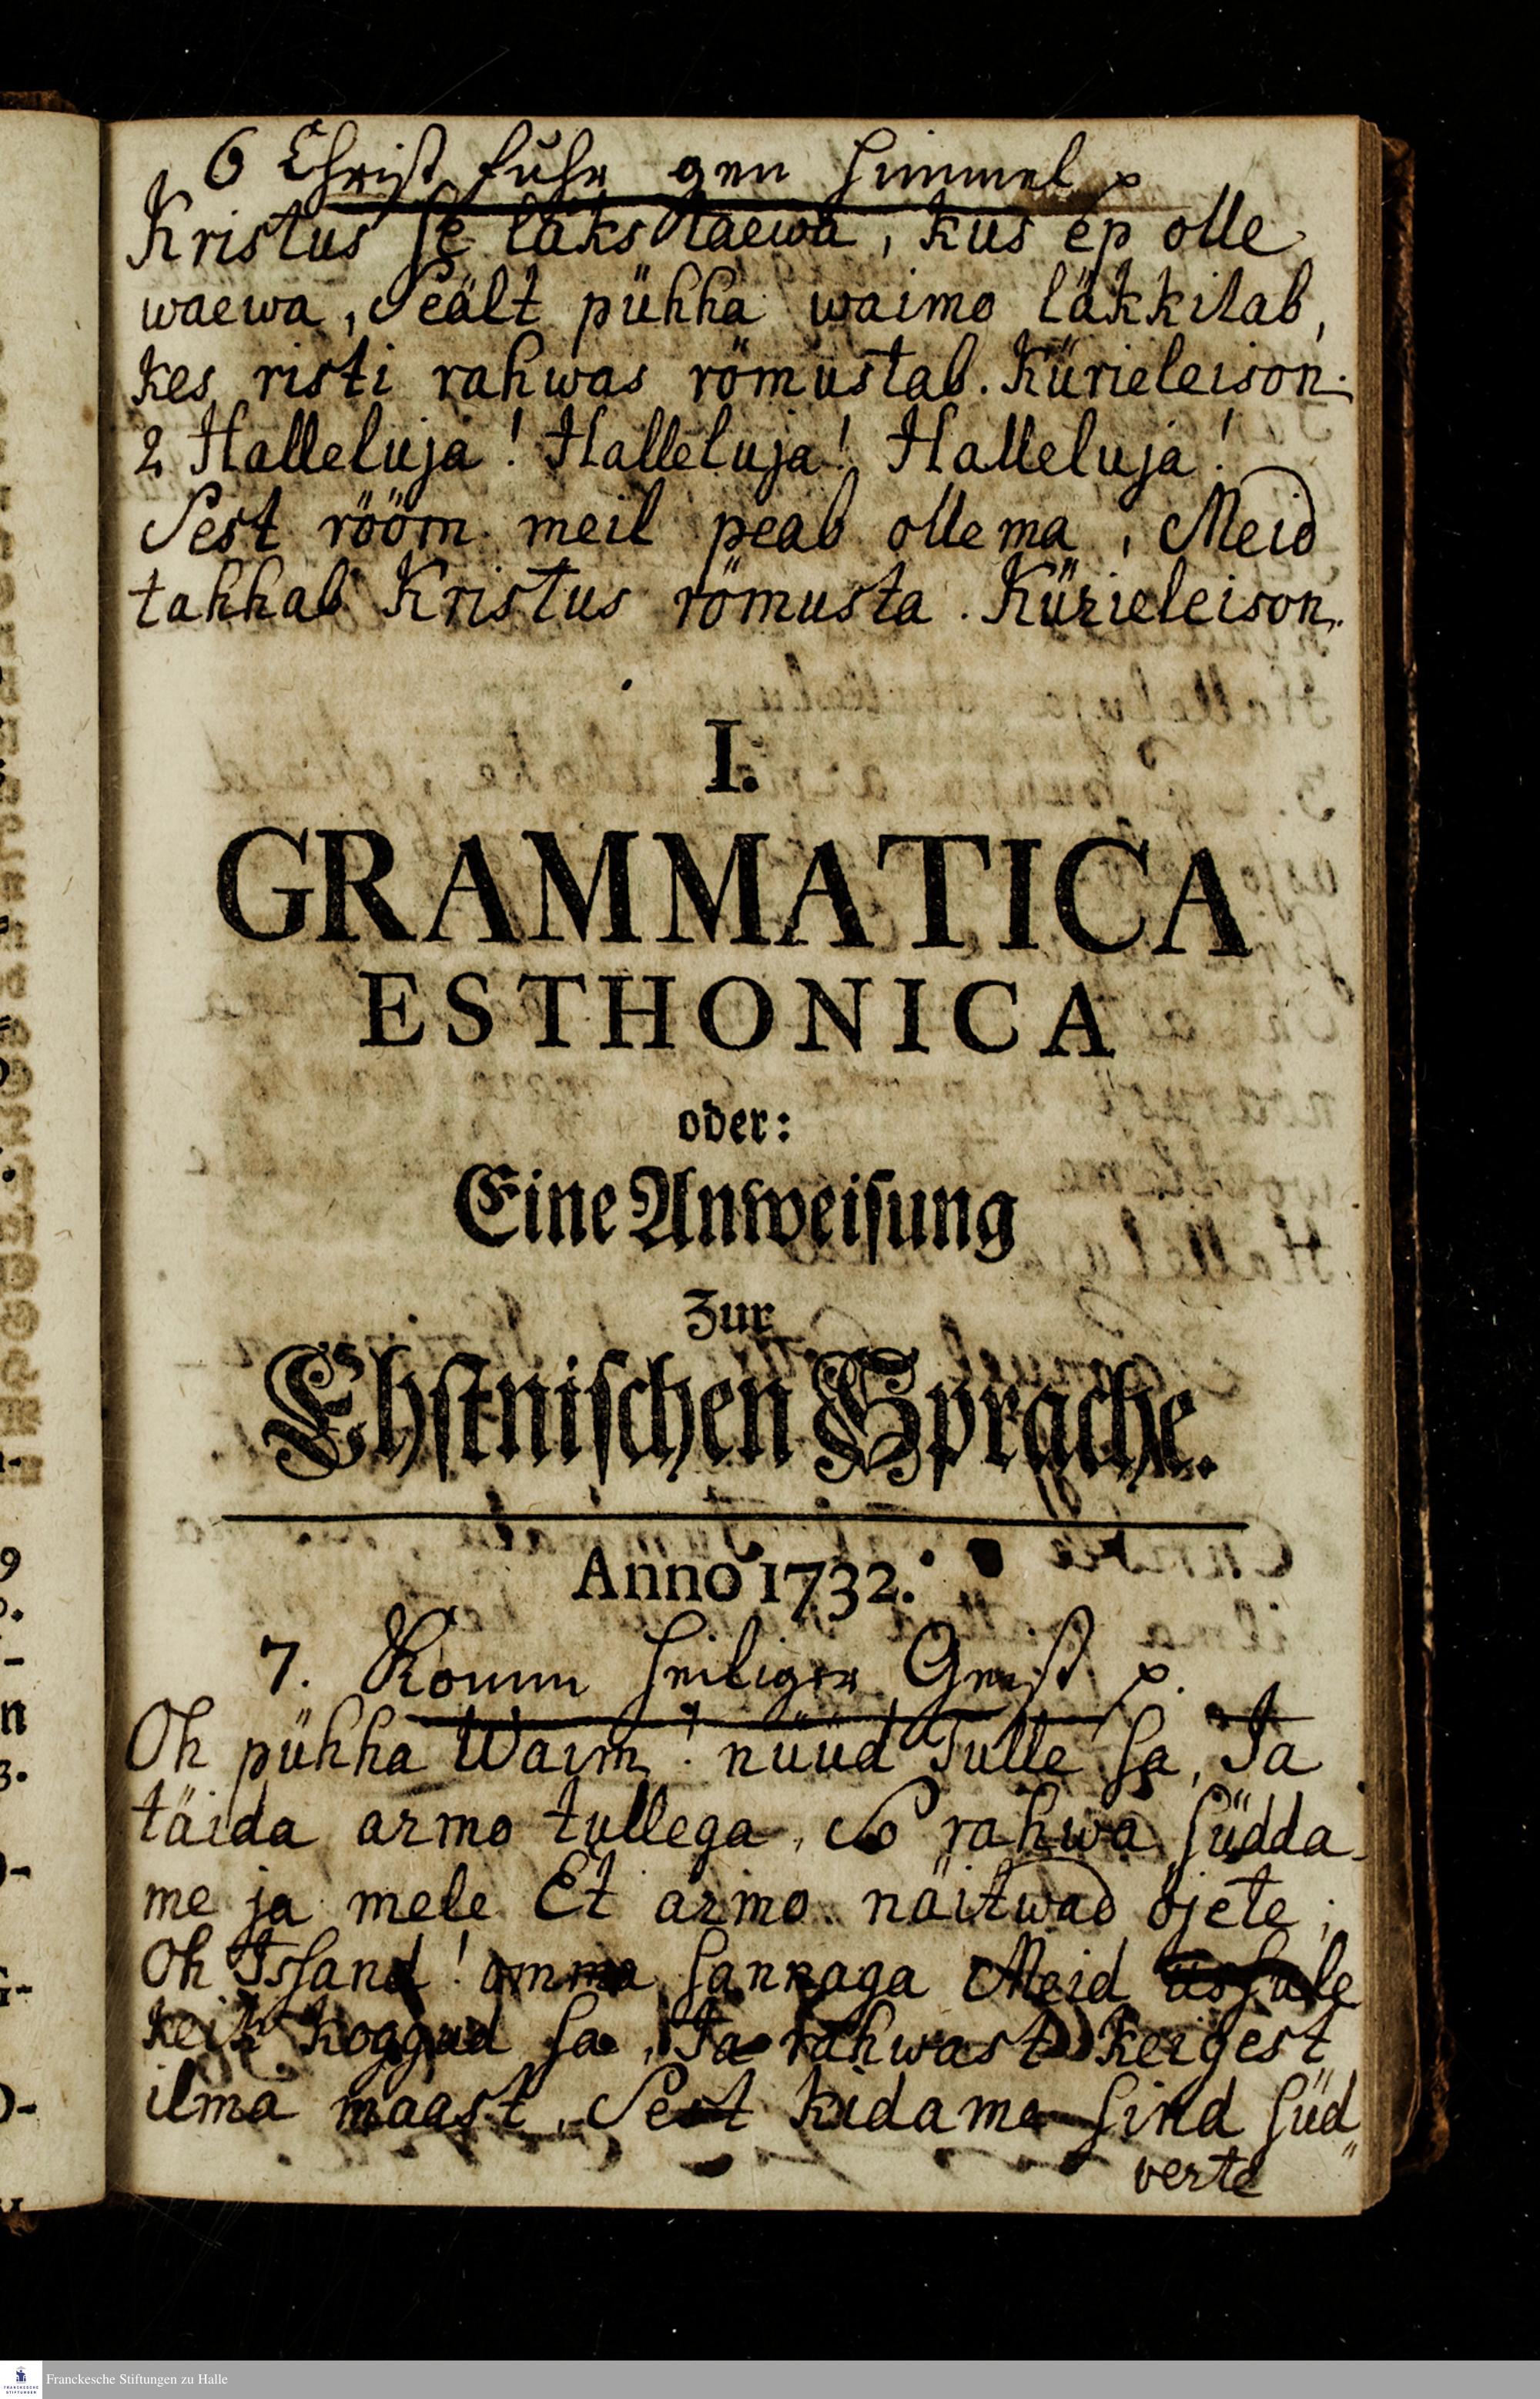 6 Christ fuhr gen Himmel
Kristus se läks taewa, kus ep olle
waewa, Seält pühha waimo läkkitab,
kes risti rahwas römustab. Kürieleison.
2 Halleluja! Halleluja! Halleluja!
Sest rööm meil peab ollema, Meid
tahhab Kristus römusta. Kürieleison.
I.
GRAMMATICA
ESTHONICA
oder:
Eine Anweisung
Zur
Ehstnischen Sprache.
Anno 1732.
7. Komm heiliger Geist
Oh pühha Waim! nüüd Tulle sa, Ja
täida armo tullega, So rahwa südda-
me ja mele Et armo näitwad öjete;
Oh Issand! omma sannaga Meid
keik koggud sa, Ja rahwast keigest
ilma maast, Sest kidame sind süd
verte
Franckesche Stiftungen zu Halle